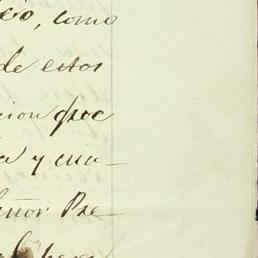 cio, como
de estos
cion que
a y cua-
eñor Pre-